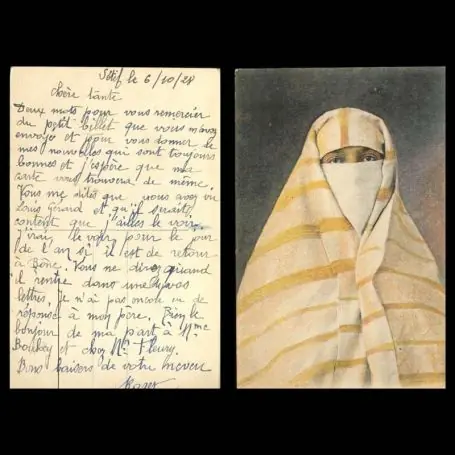 Sétif le 6/10/28
chère tante
Deux mots pour vous remercier
du petit billet que vous m'avez
envoyé et pour vous donner de
mes nouvelles qui sont toujours
bonnes et j'espère que ma
carte vous trouvera de même.
Vous me dites que vous avez vu
Louis Gérard et qu'il serait
content que j'ailles le voir.
J'irai le voir pour le jour
de l'an si il est de retour
à Bône. Vous me direz quand
il rentre dans une de vos
lettres. Je n'ai pas encore eu de
réponse à mon père. Bien le
bonjour de ma part à Mme
et chez Mr Fleury.
Bons baisers de votre neveu